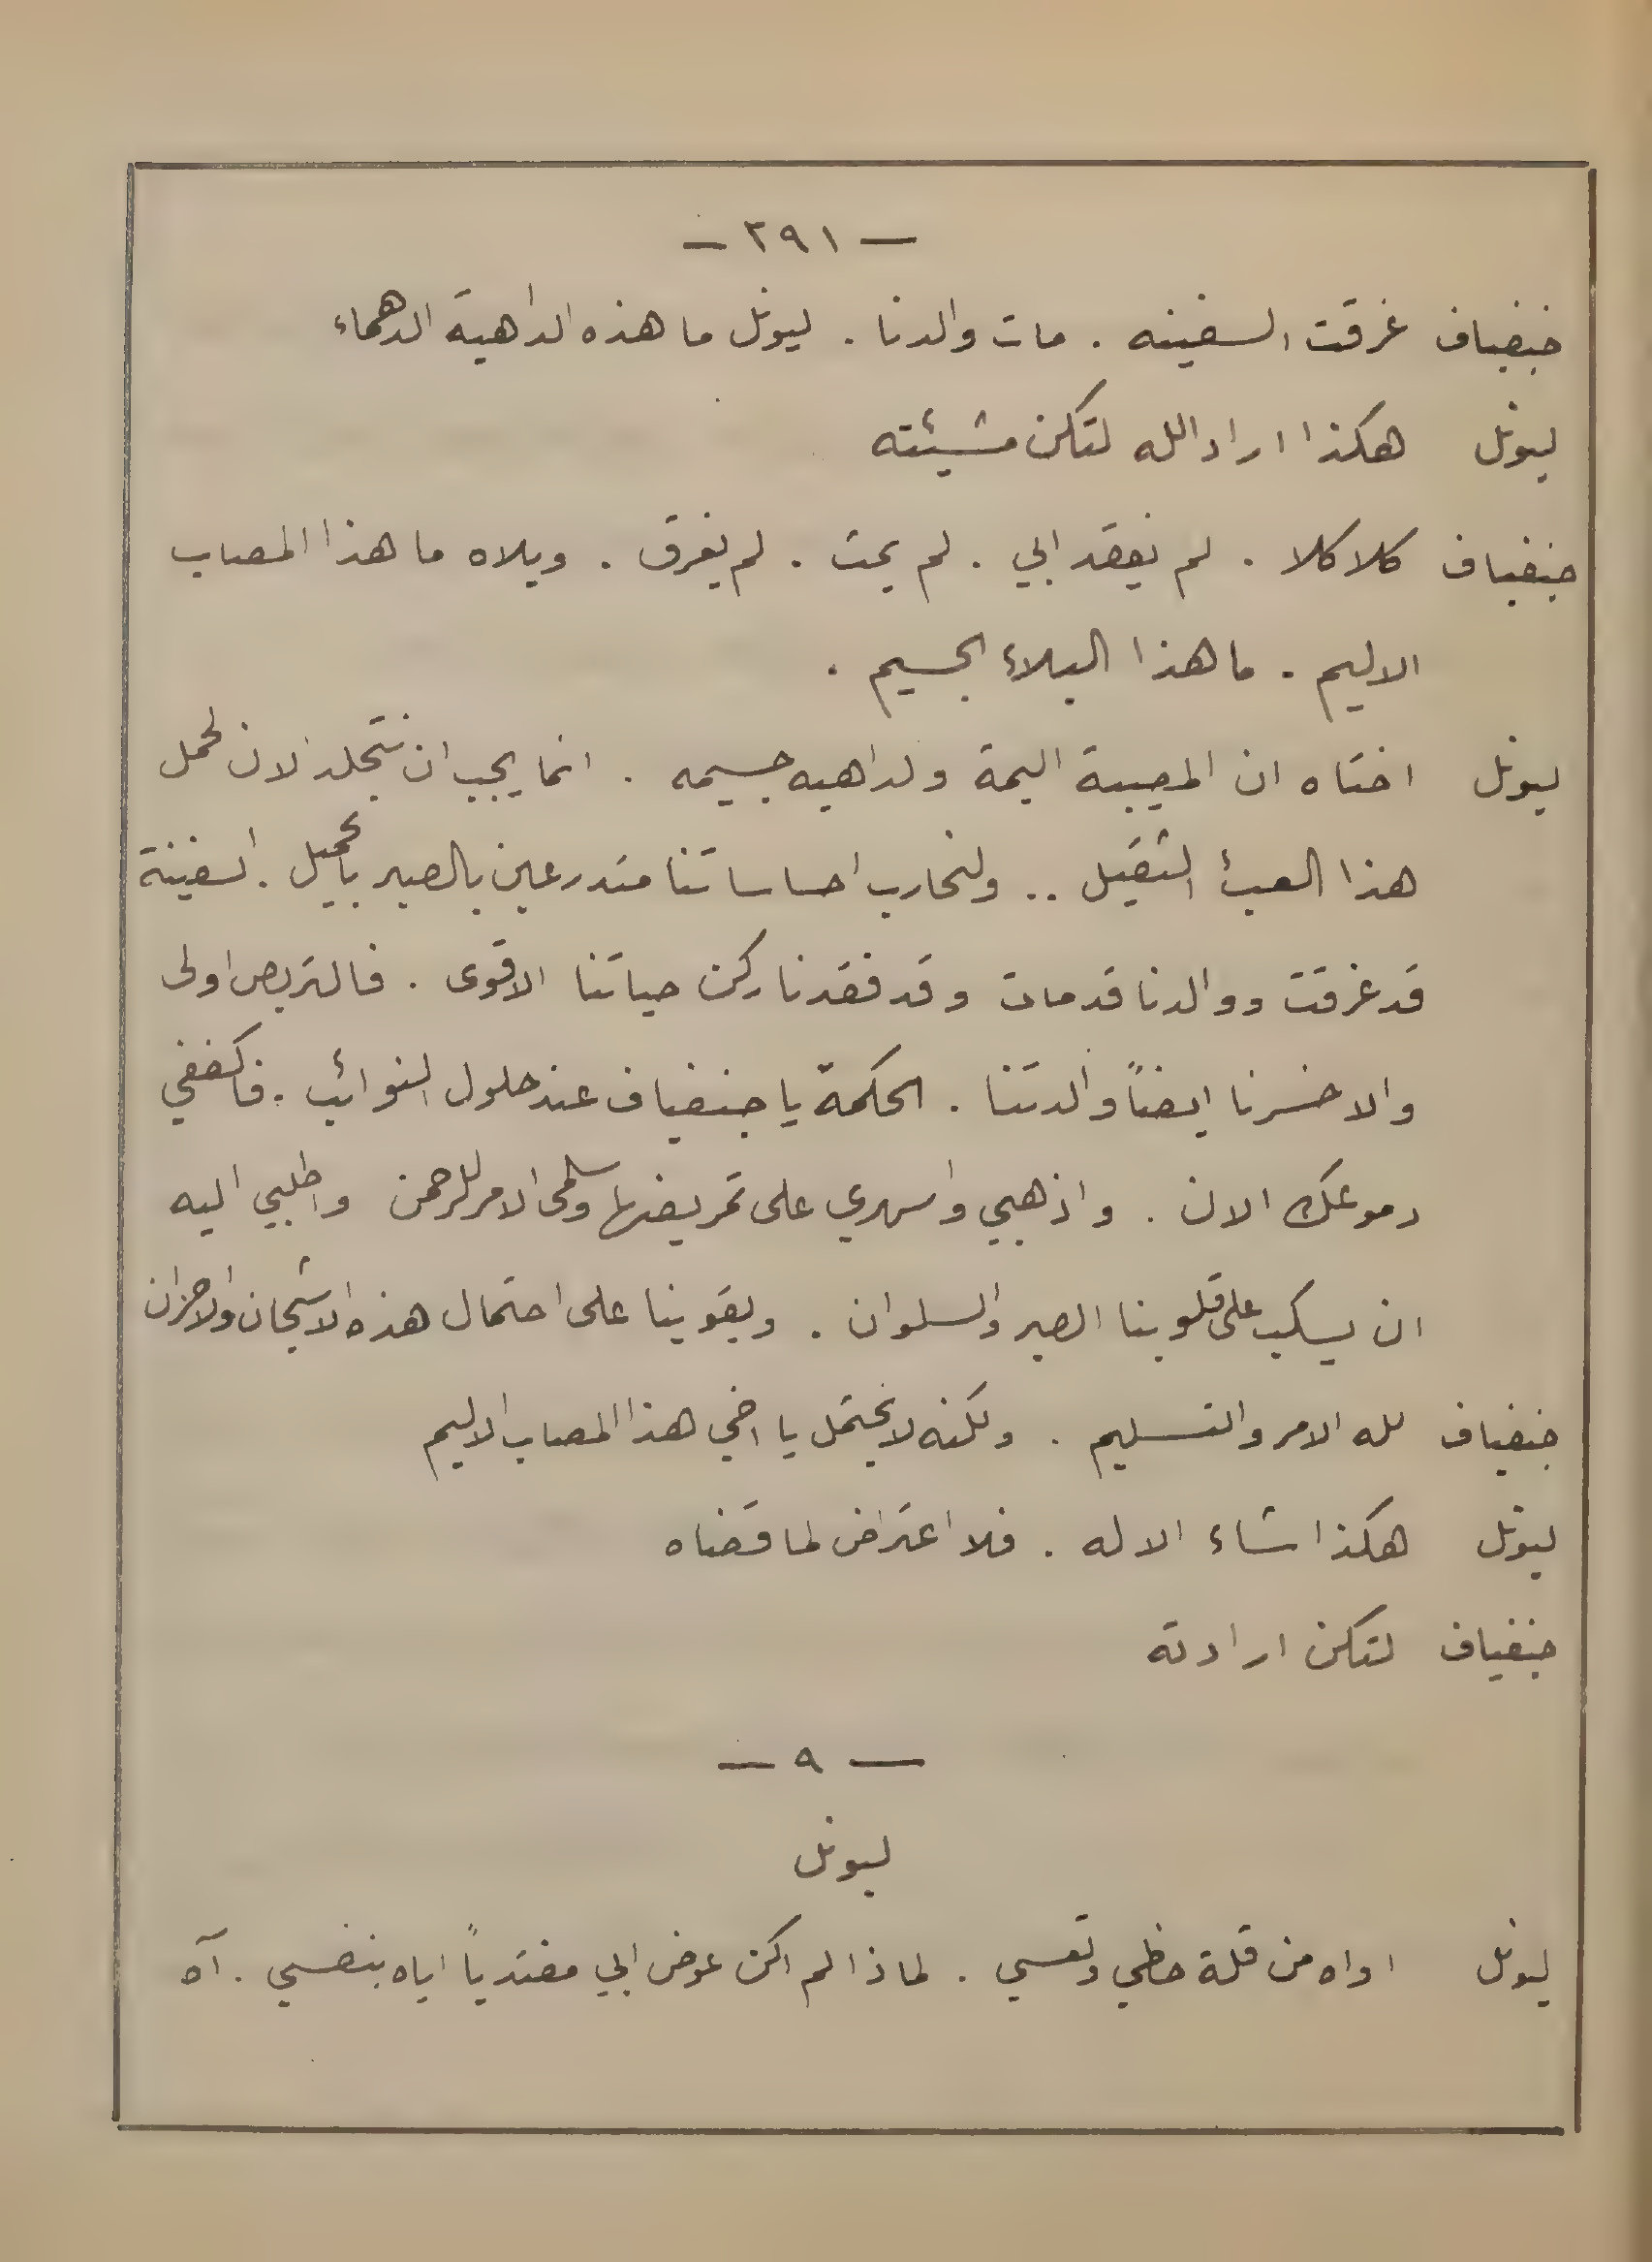 — ٢٩١ —
جنفياف غرقت السفينه . مات والدنا . ليونل ما هذه الداهية الدهماء
ليونل هكذا اراد الله لتكن مشيئته
جنفياف كلا كلا . لم نفقد ابي . لم يمت . لم يغرق . ويلاه ما هذا المصاب
الاليم . ما هذا البلاء الجسيم .
ليونل اختاه ان المصيبة اليمة والداهيه جسيمه . انما يجب ان نتجلد الان لحمل
هذا العبئ الثقيل .. ولنحارب احساساتنا متدرعين بالصبر الجميل . السفينة
قد غرقت ووالدنا قد مات وقد فقدنا ركن حياتنا الاقوى . فالتربص اولى
والا خسرنا ايضاً والدتنا . الحكمة يا جنفياف عند حلول النوائب . فاكففي
دموعك الان . واذهبي واسهري على تمريضها وسلمى الامر للرحمن واطلبي اليه
ان يسكب على قلوبنا الصبر والسلوان . ويقوينا على احتمال هذه الاشجان والاحزان
جنفياف لله الامر والتسليم . ولكنه لا يحتمل يا اخي هذا المصاب الاليم
ليونل هكذا شاء الاله . فلا اعتراض لما قضاه
جنفياف لتكن ارادته
— ٩ —
ليونل
ليونل اواه من قلة حظي وتعسي . لماذا لم اكن عوض ابي مفتدياً اياه بنفسي . آه